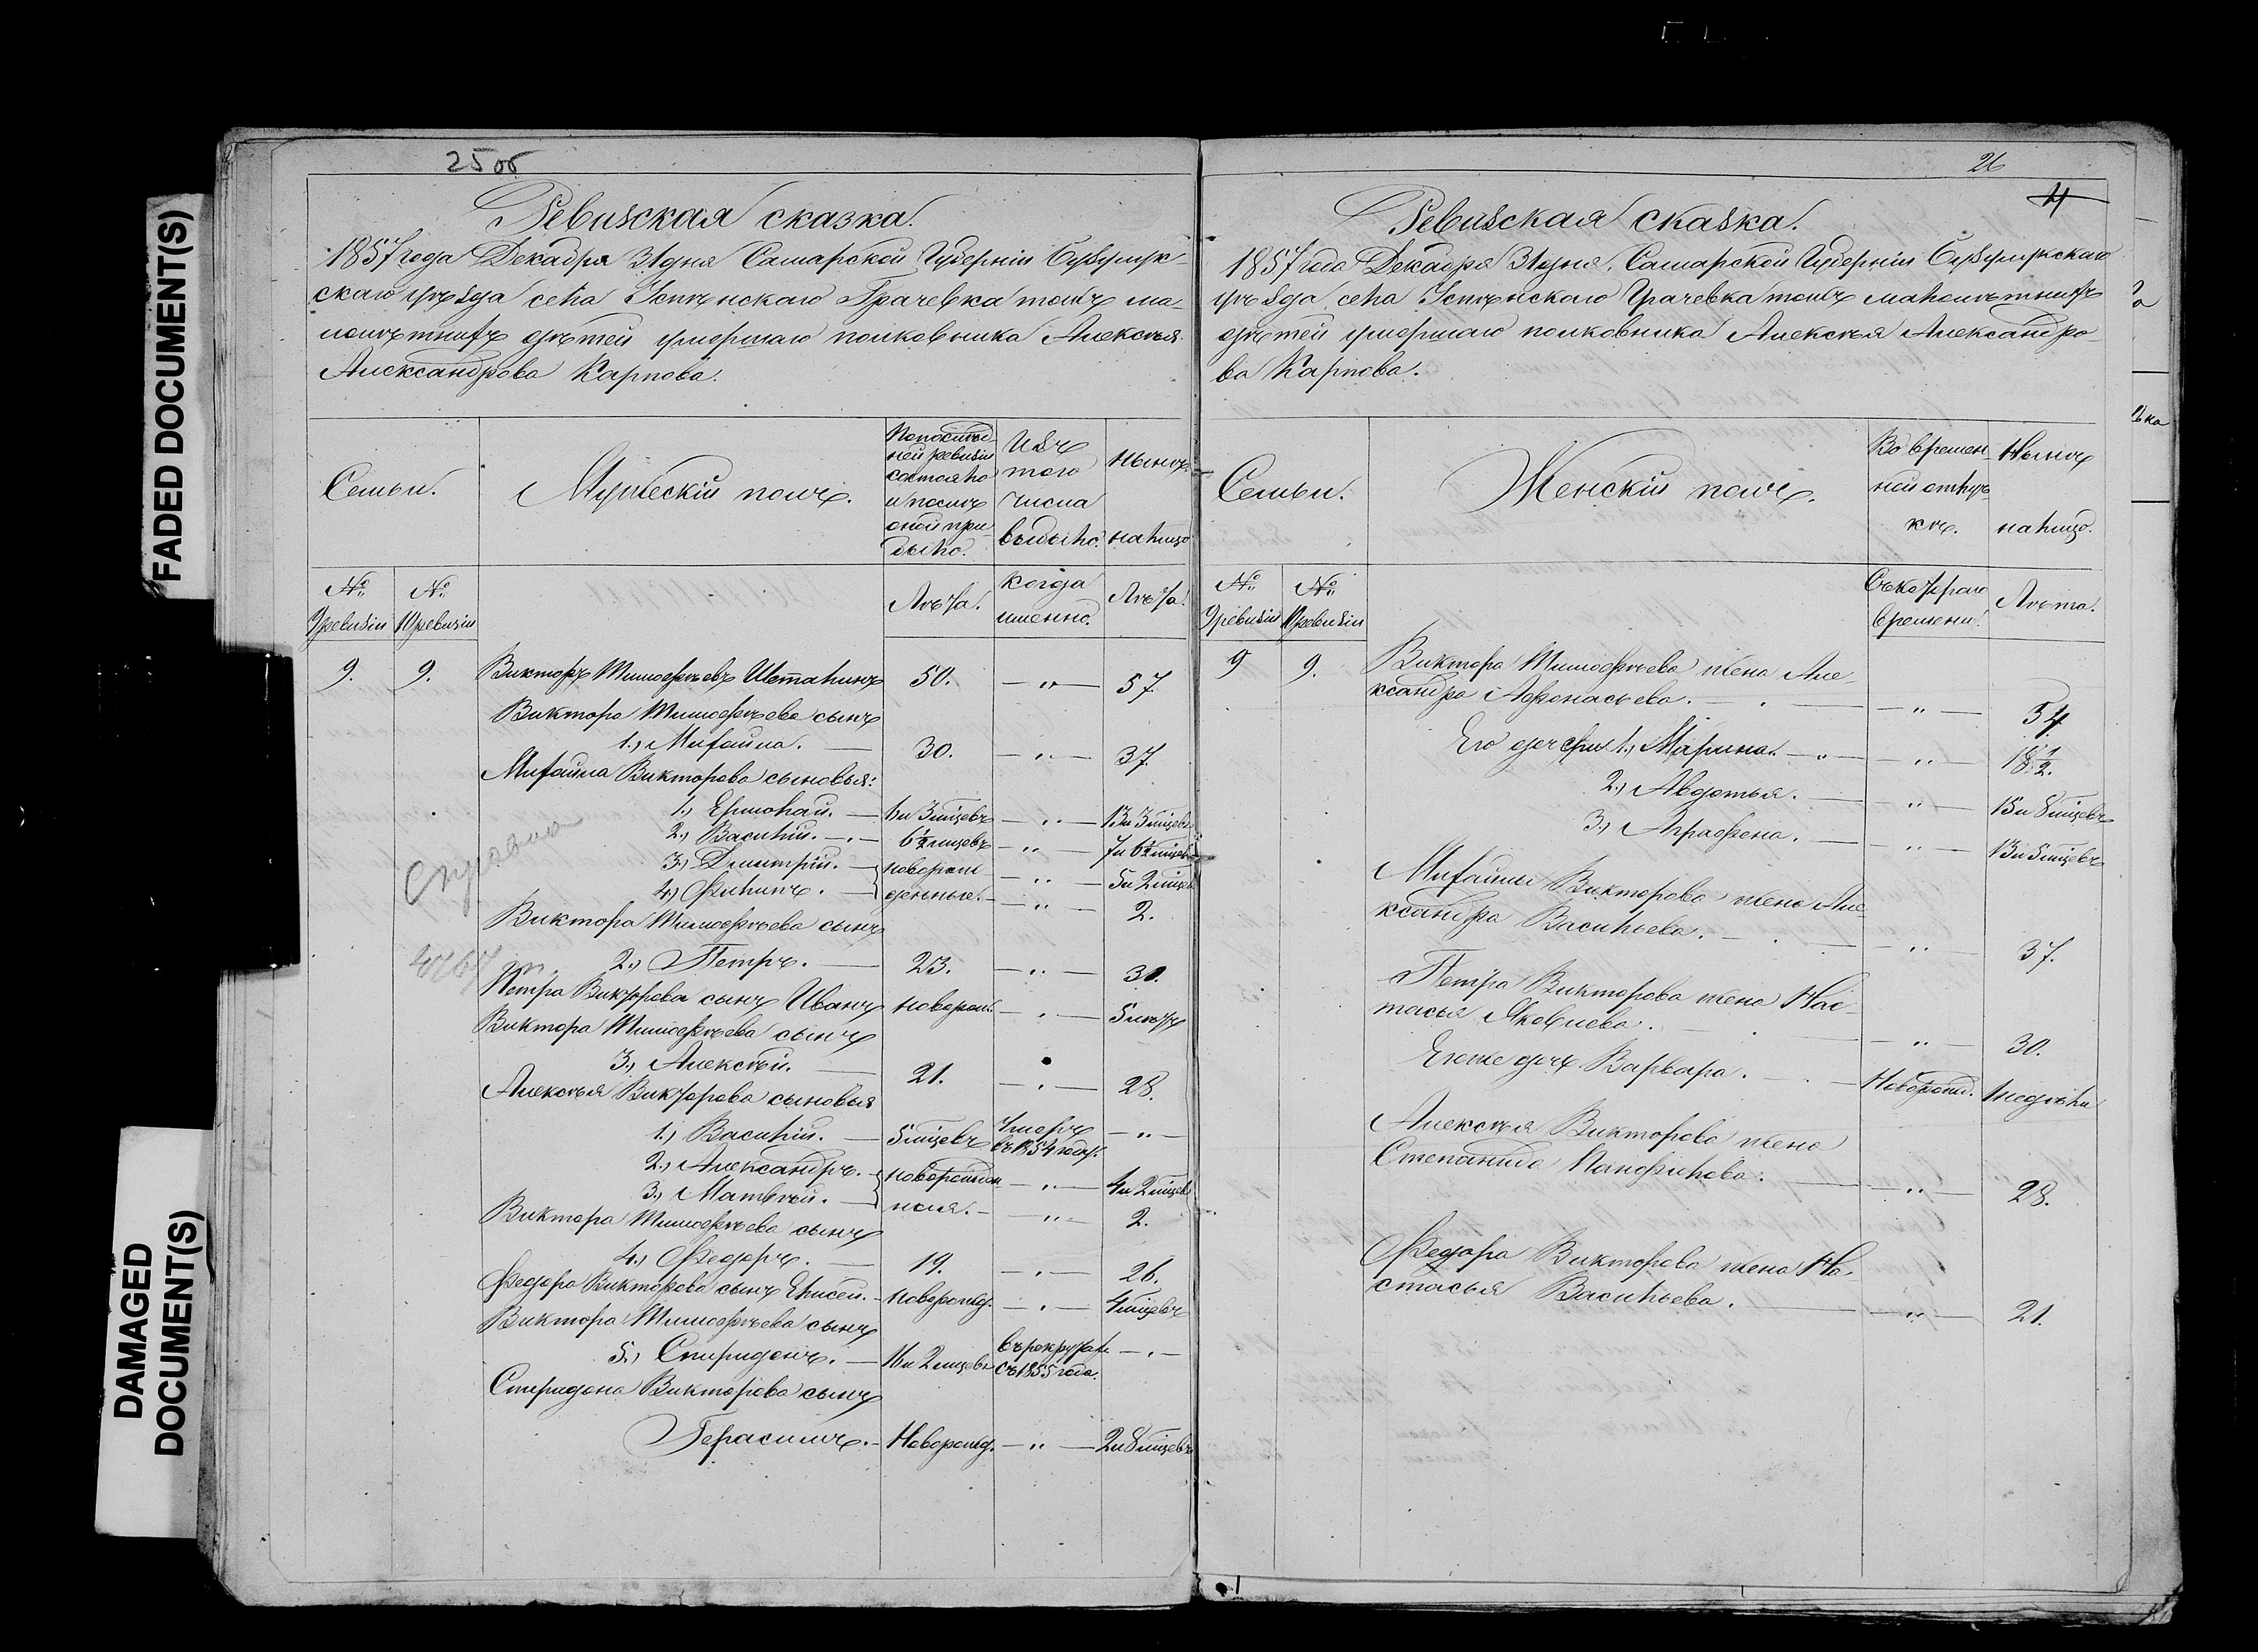 FADED DOCUMENT(S)
DAMAGED
DOCUMENT(S)
25 об
Ревизская сказка.
1857 года Декабря 31 дня Самарской Губерніи Бузулук-
скаго уѣзда села Успѣнскаго Грачевка тожъ ма-
лолѣтнихъ дѣтей умершаго полковника Алексѣя
Александрова Карпова.
Семьи.
Мужескій полъ.
По послѣд-
ней ревизіи
состояло
и послѣ
оной при-
было.
Изъ
того
числа
выбыло.
Нынѣ
на лицо
№ 9 ревизіи
№ 10 ревизіи
Лѣта.
Когда
именно.
Лѣта.
9. 9. Викторъ Тимофѣевъ 50. — „ — 57.
Виктора Тимофѣева сынъ
1.) Михайла. — 30. — „ — 37.
Михайла Викторова сыновья:
1.) Ермолай. — 6 и 3 мѣсцевъ — „ — 13 и 3 мѣсцевъ
2.) Василій. — 6½ мѣсцевъ — „ — 7 и 6½ мѣсцевъ
3.) Дмитрій. — новорож- — „ — 5 и 2 мѣсцев
4.) Филипъ. — денные. — „ — 2.
Виктора Тимофѣева сынъ
2.) Петръ. — 23. — „ — 30.
Петра Викторова сынъ Иванъ новорож. — „ — 5 лѣтъ
Виктора Тимофѣева сынъ
3.) Алексѣй. — 21. — „ — 28.
Алексѣя Викторова сыновья
1.) Василій. — 5 мѣсцевъ Умеръ въ 1854 году. — „ —
2.) Александръ. — новорожден- — „ — 4 и 2 мѣсцев
3.) Матвѣй. — „ — 2.
Виктора Тимофѣева сынъ
4.) Федоръ. — 19. — „ — 26.
Федора Викторова сынъ Елисей. — Новорожд. — „ — 4 мѣсцевъ
Виктора Тимофѣева сынъ
5.) Спиридонъ. — 11 и 2 мѣсцевъ въ рекрутахъ съ 1855 года. — „ —
Спиридона Викторова сынъ
Герасимъ. — Новорожд. — „ — 2 и 8 мѣсцевъ
26
4
Ревизская сказка.
1857 года Декабря 31 дня, Самарской Губерніи Бузулукскаго
уѣзда села Успѣнскаго Грачевка тожъ малолѣтнихъ
дѣтей умершаго полковника Алексѣя Александро-
ва Карпова.
Семьи.
Женскій полъ.
Во времен-
ной отлуч-
кѣ.
Нынѣ
на лицо.
№ 9 ревизіи
№ 10 ревизіи
Съ котораго
времени.
Лѣта.
9 9. Виктора Тимофѣева жена Але-
ксандра Афонасьева. — „ — 54.
Его дочери 1.) Марина. — „ — 18½.
2.) Авдотья. — „ — 15 и 8 мѣсцевъ
3.) Аграфена. — „ — 13 и 5 мѣсцевъ
Михайлы Викторова жена Але-
ксандра Васильева. — „ — 37.
Петра Викторова жена Нас-
тасья Яковлева. — „ — 30.
Его же дочь Варвара. — Новорожд. 1 недѣли
Алексѣя Викторова жена
Степанида Панфилова. — „ — 28.
Федора Викторова жена На-
стасья Васильева. — „ — 21.